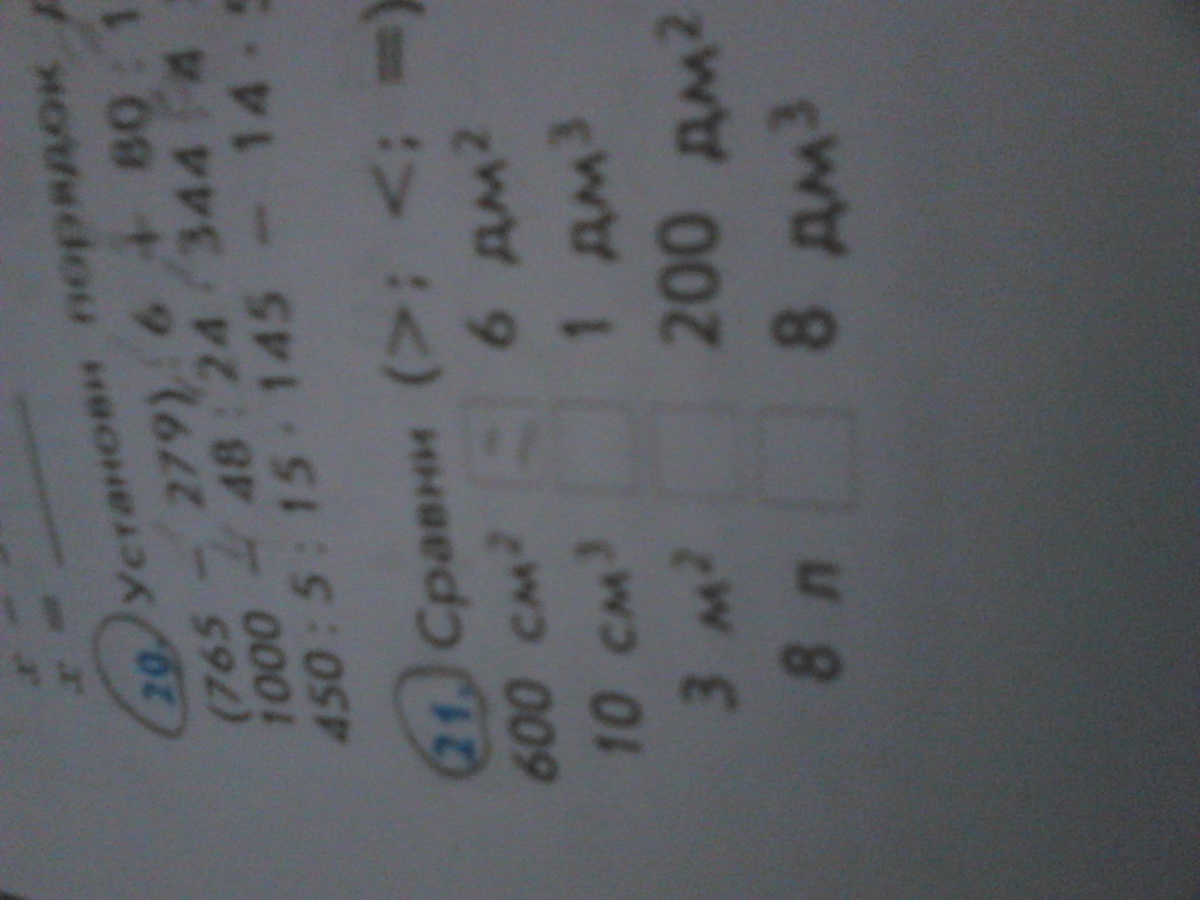 x -
x =
20. Установи порядок
(765 - 279) : 6 + 80 : 1
1000 - 48 : 24 344 : 4
450 : 5 : 15 · 145 - 14 ·
21. Сравни (>; <; =)
600 см² = 6 дм²
10 см³ 1 дм³
3 м² 200 дм²
8 л 8 дм³